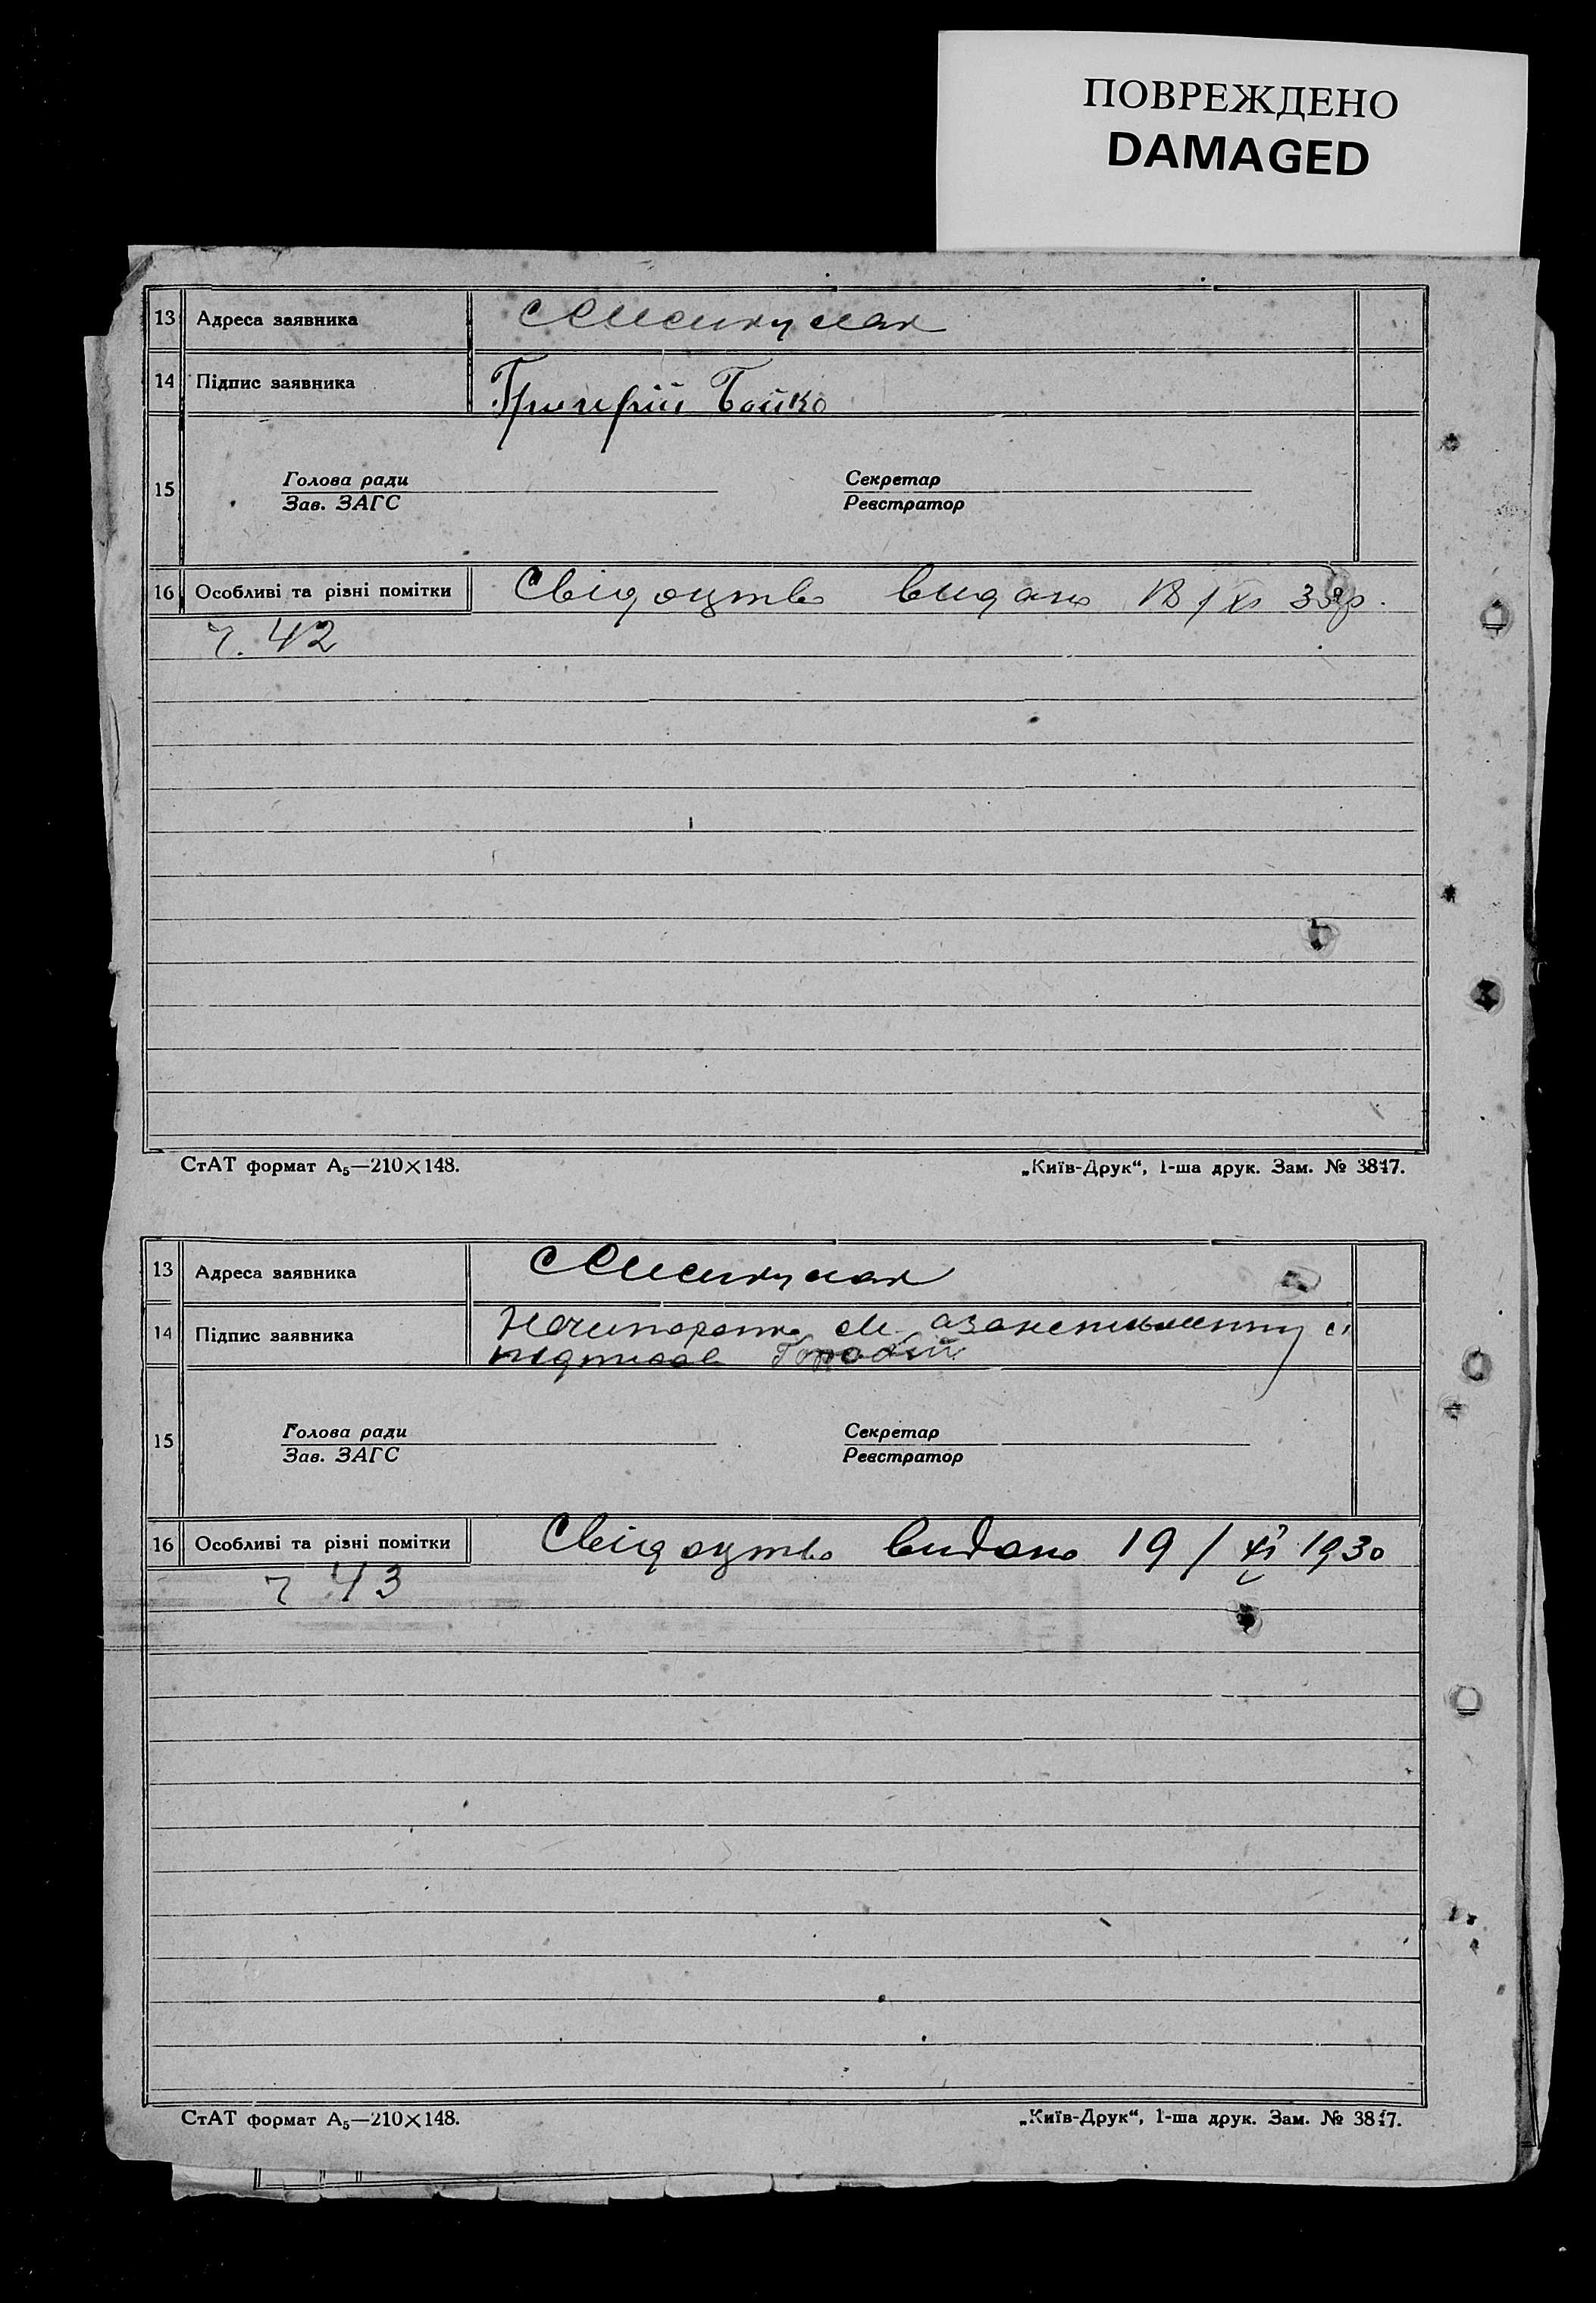 ПОВРЕЖДЕНО
DAMAGED
13 Адреса заявника
14 Підпис заявника Григорій Бойко
15 Голова ради Секретар
Зав. ЗАГС Реєстратор
16 Особливі та різні помітки Свідоцтво видано 18/XI 30р.
ч. 42
СтАТ формат А₅—210×148. „Київ-Друк“, 1-ша друк. Зам. № 3847.
13 Адреса заявника
14 Підпис заявника Нечипоренко
підписав
15 Голова ради Секретар
Зав. ЗАГС Реєстратор
16 Особливі та різні помітки Свідоцтво видано 19/XI 1930
ч 43
СтАТ формат А₅—210×148. „Київ-Друк“, 1-ша друк. Зам. № 3847.